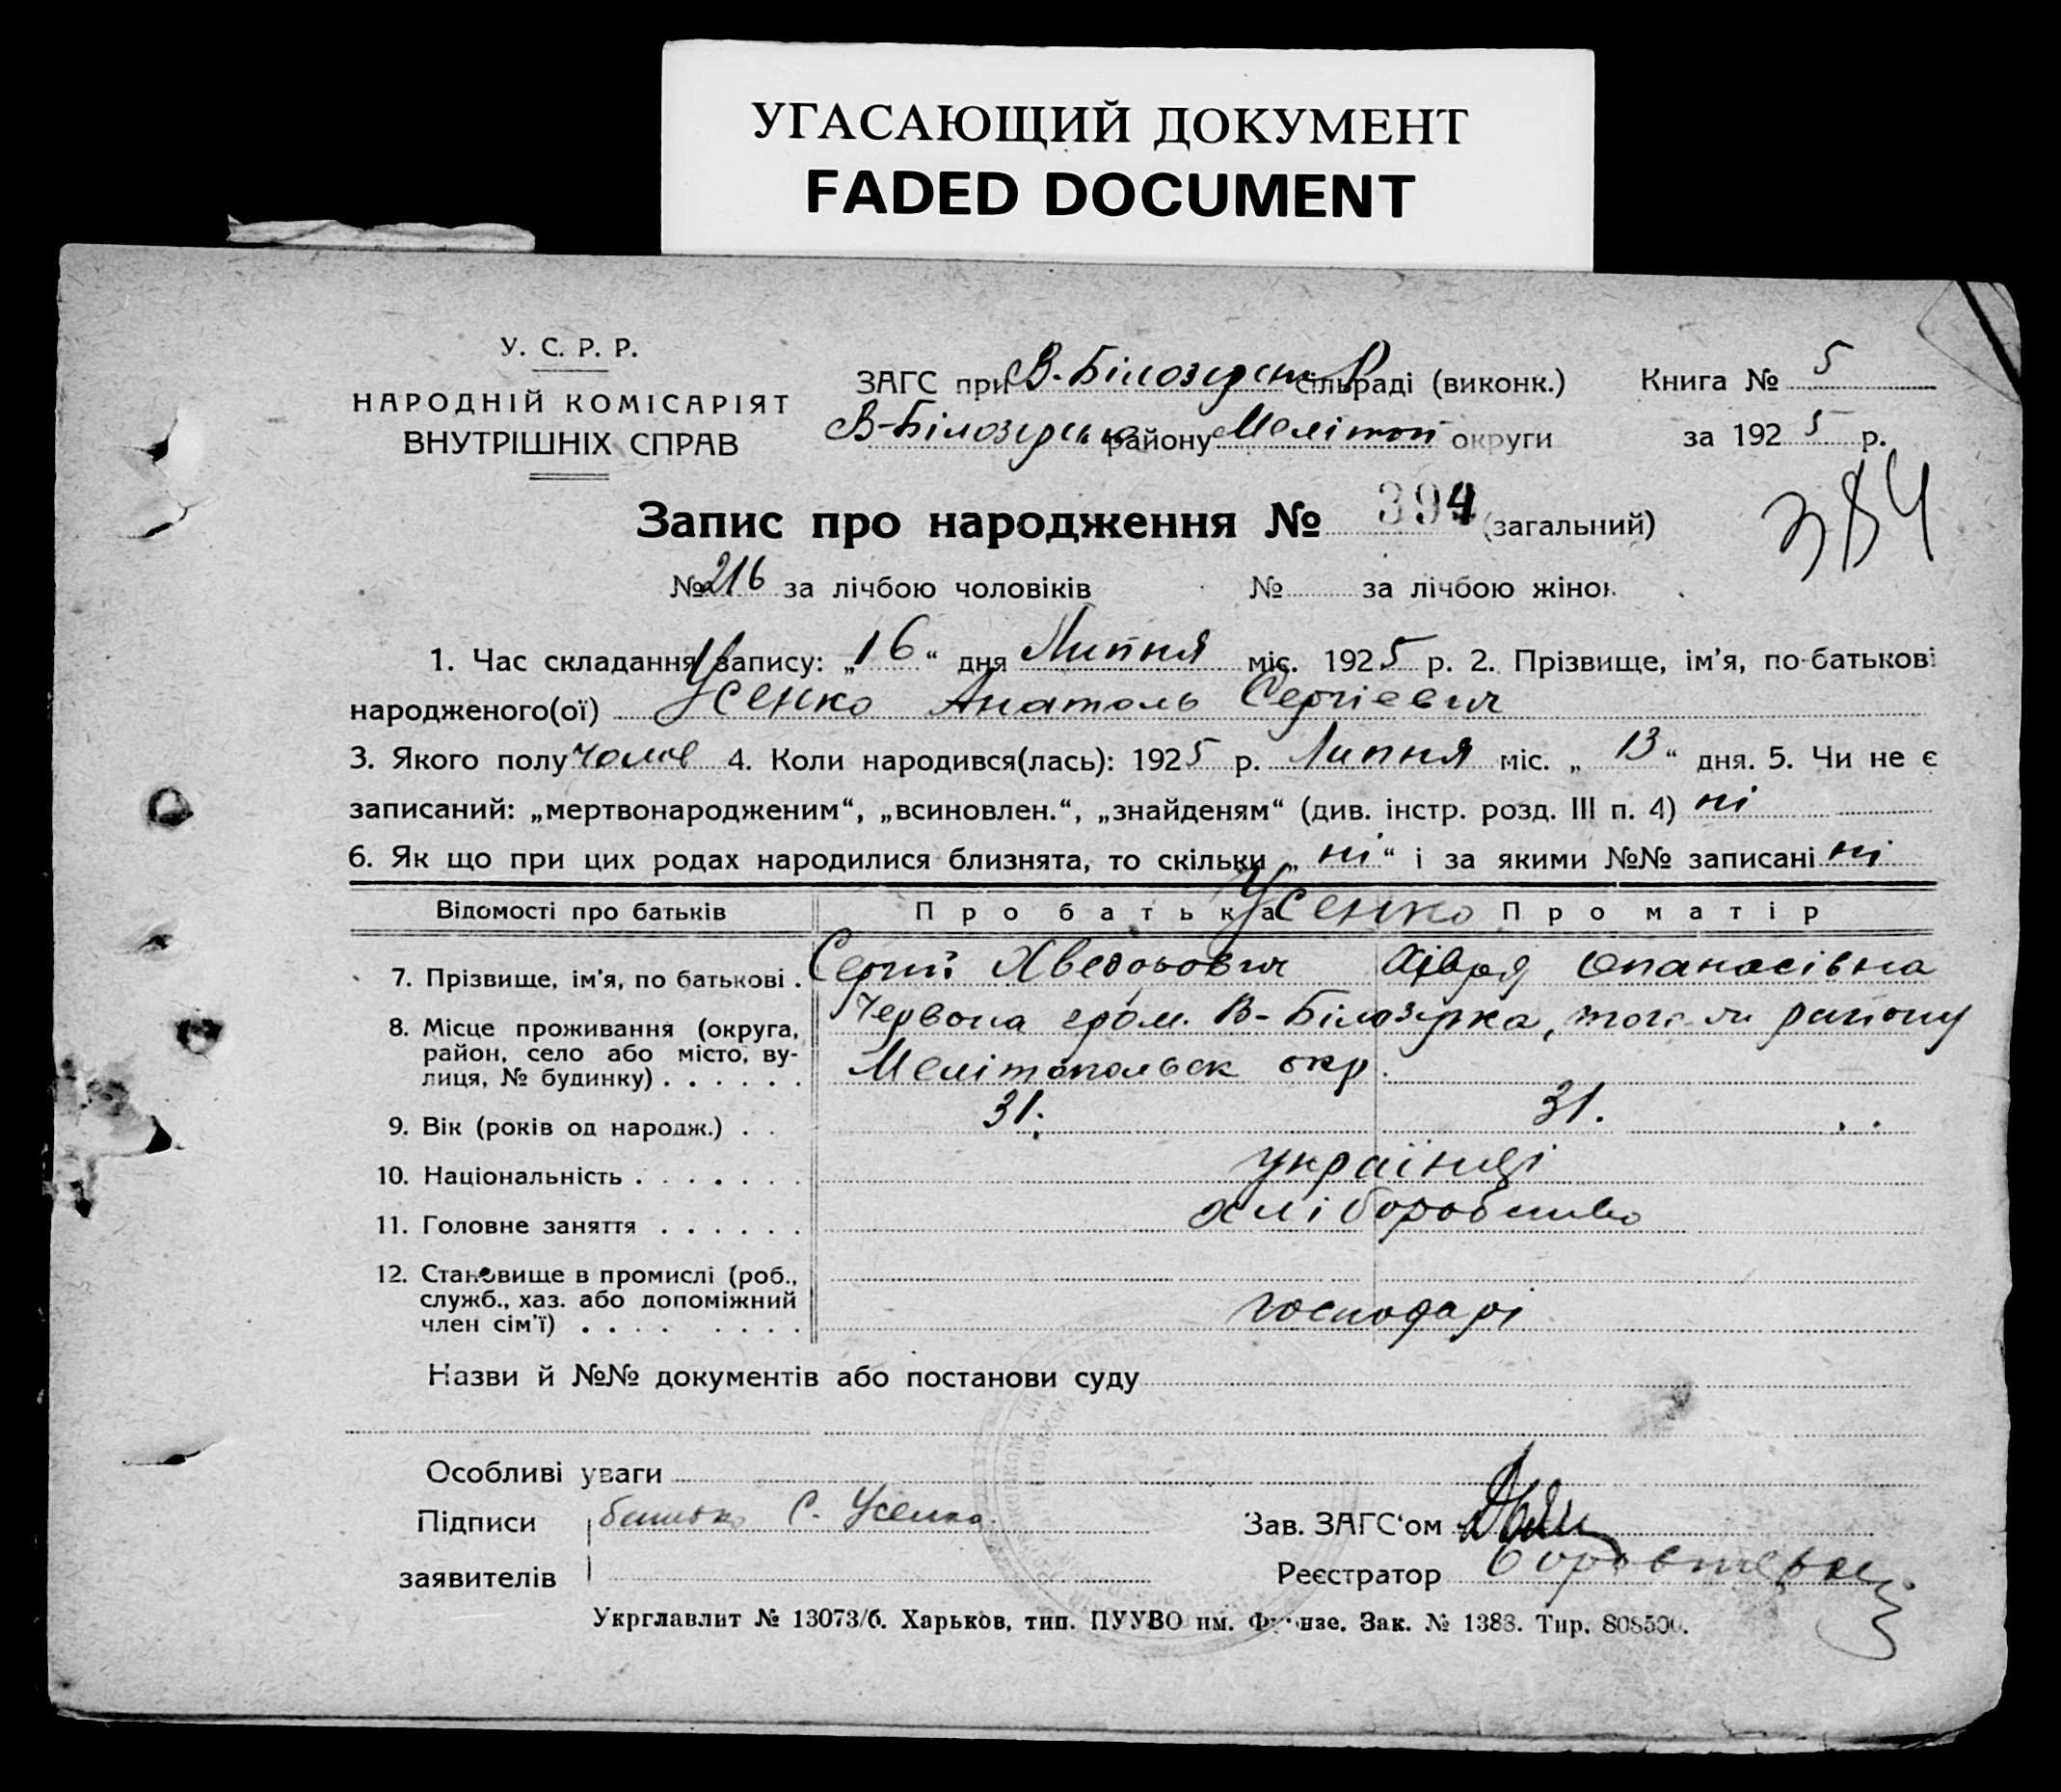 УГАСАЮЩИЙ ДОКУМЕНТ
FADED DOCUMENT
У. С. Р. Р.
НАРОДНІЙ КОМІСАРІЯТ
ВНУТРІШНІХ СПРАВ
ЗАГС при В-Білозерск сільраді (виконк.)
В-Білозерськ району Мелітоп округи
Книга № 5
за 1925 р.
Запис про народження № 394 (загальний)
384
№ 216 за лічбою чоловіків № за лічбою жінок
1. Час складання запису: „16“ дня Липня міс. 1925 р. 2. Прізвище, ім'я, по-батькові
народженого(ої) Усенко Анатоль Сергієвич
3. Якого полу чолов 4. Коли народився(лась): 1925 р. Липня міс. „13“ дня. 5. Чи не є
записаний: „мертвонародженим“, „всиновлен.“, „знайденям“ (див. інстр. розд. III п. 4) ні
6. Як що при цих родах народилися близнята, то скільки „ні“ і за якими №№ записані ні
Відомості про батьків Про батька Усенко Про матір
7. Прізвище, ім'я, по батькові . Сергій Хведорович Хівря Опанасівна
8. Місце проживання (округа, Червона гром. В-Білозірка, того-ж району
район, село або місто, ву-
лиця, № будинку) . . . . . . Мелітопольск окр.
9. Вік (років од народж.) . . 31. 31.
10. Національність . . . . . . . українці
11. Головне заняття . . . . . . хліборобство
12. Становище в промислі (роб.,
служб., хаз. або допоміжний
член сім'ї) . . . . . . . . господарі
Назви й №№ документів або постанови суду
Особливі уваги
Підписи батько С. Усенко
заявителів
Зав. ЗАГС'ом
Реєстратор
Укрглавлит № 13073/б. Харьков, тип. ПУУВО им. Фрунзе. Зак. № 1388. Тир. 808500.